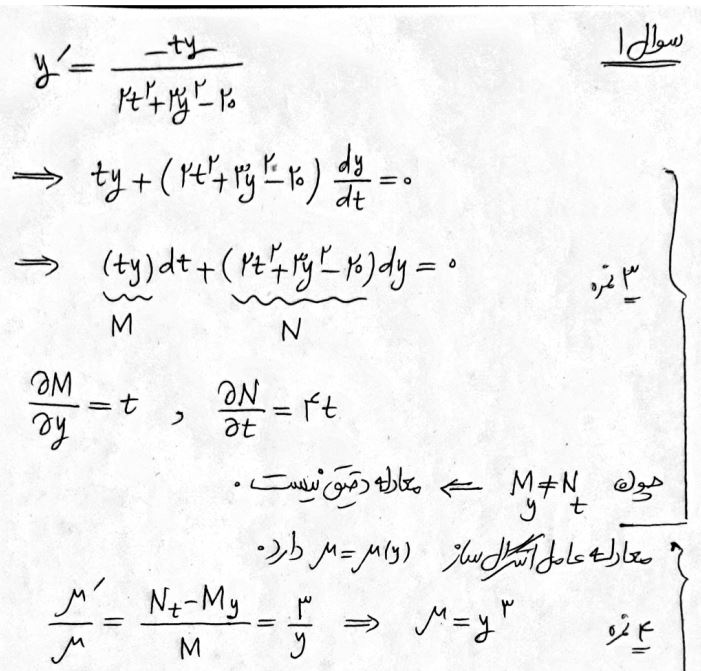 سوال ۱
y′ = −ty / ۲t²+۳y²−۲۰
⇒ ty + (۲t²+۳y²−۲۰) dy/dt = ۰
⇒ (ty)dt + (۲t²+۳y²−۲۰)dy = ۰
M N
۳ نمره
∂M/∂y = t , ∂N/∂t = ۴t
چون M_y ≠ N_t ⇐ معادله دقیق نیست .
معادله عامل انتگرال ساز μ = μ(y) دارد .
μ′/μ = N_t − M_y / M = ۳/y ⇒ μ = y³
۴ نمره